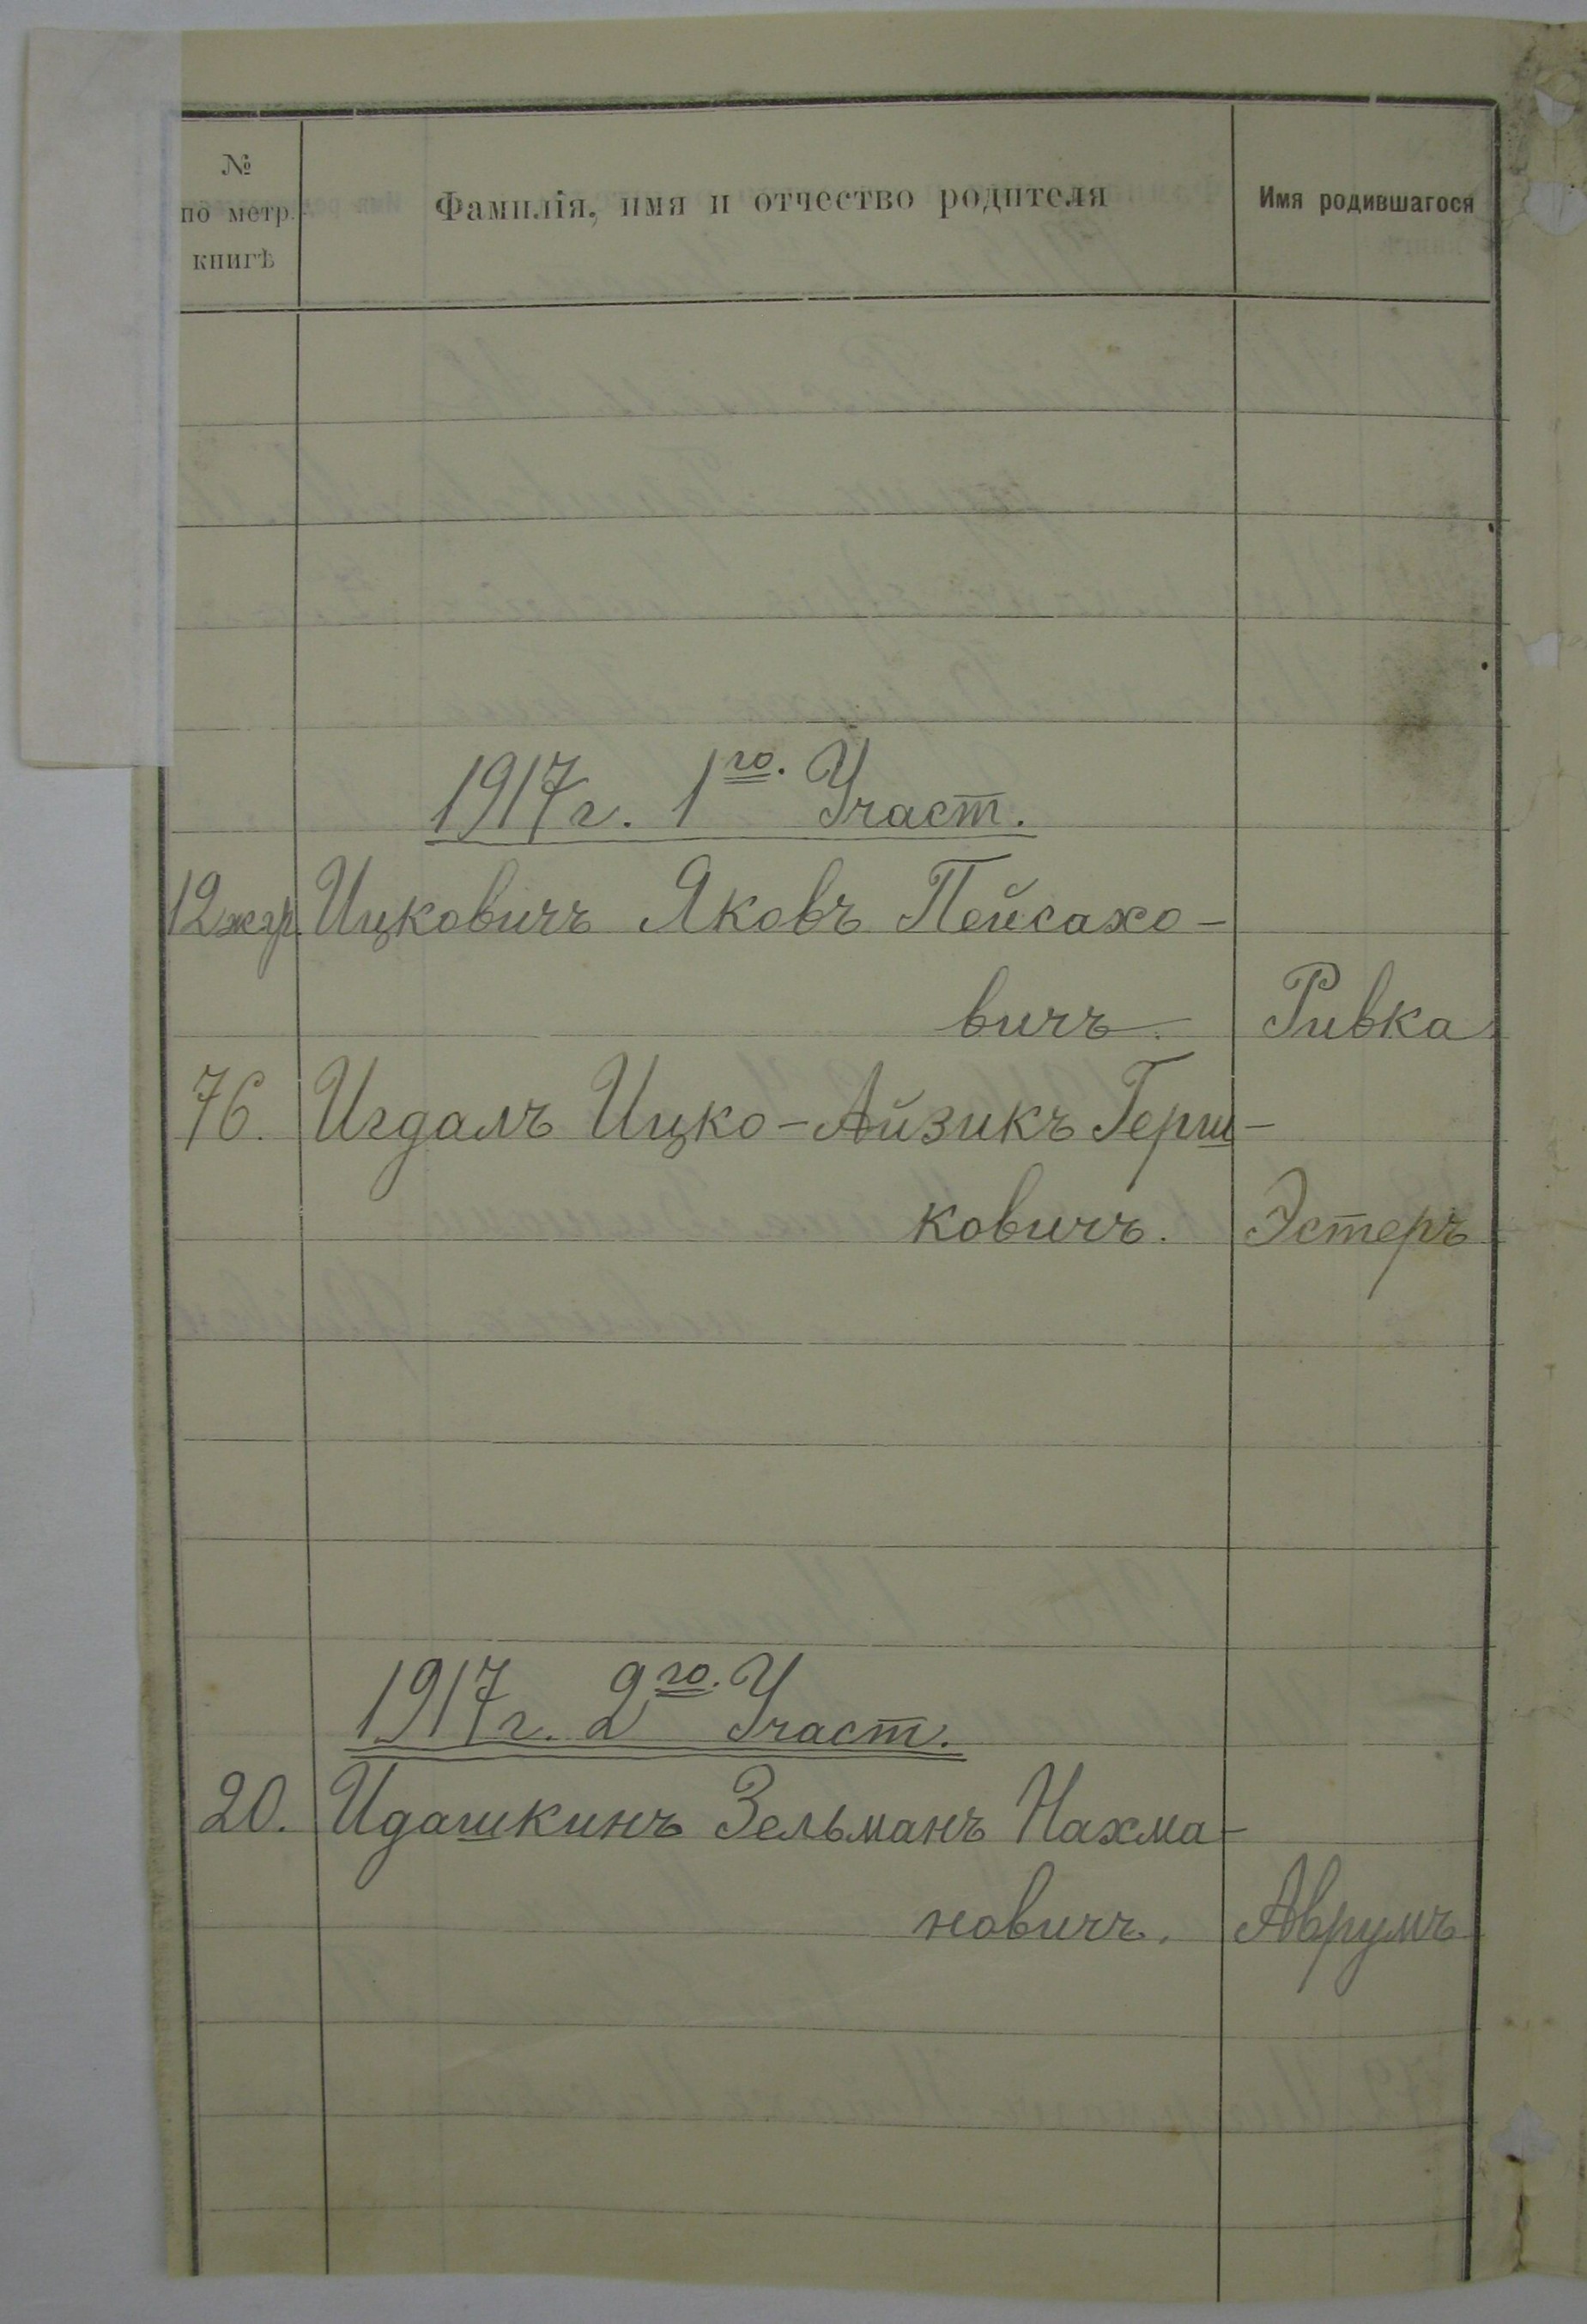 №
по метр.
книгѣ
Фамилія, имя и отчество родителя
Имя родившагося
1917 г. 1го. Участ.
12 жгр. Ицковичъ Яковъ Пейсахо-
вичъ. Ривка
76. Игдалъ Ицко-Айзикъ Герш-
ковичъ. Эстеръ
1917 г. 2го. Участ.
20. Идашкинъ Зельманъ Нахма-
новичъ. Аврумъ